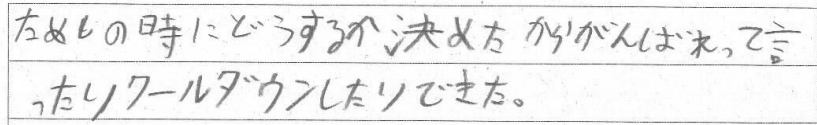 ためしの時にどうするか決めたからがんばれって言
ったりクールダウンしたりできた。